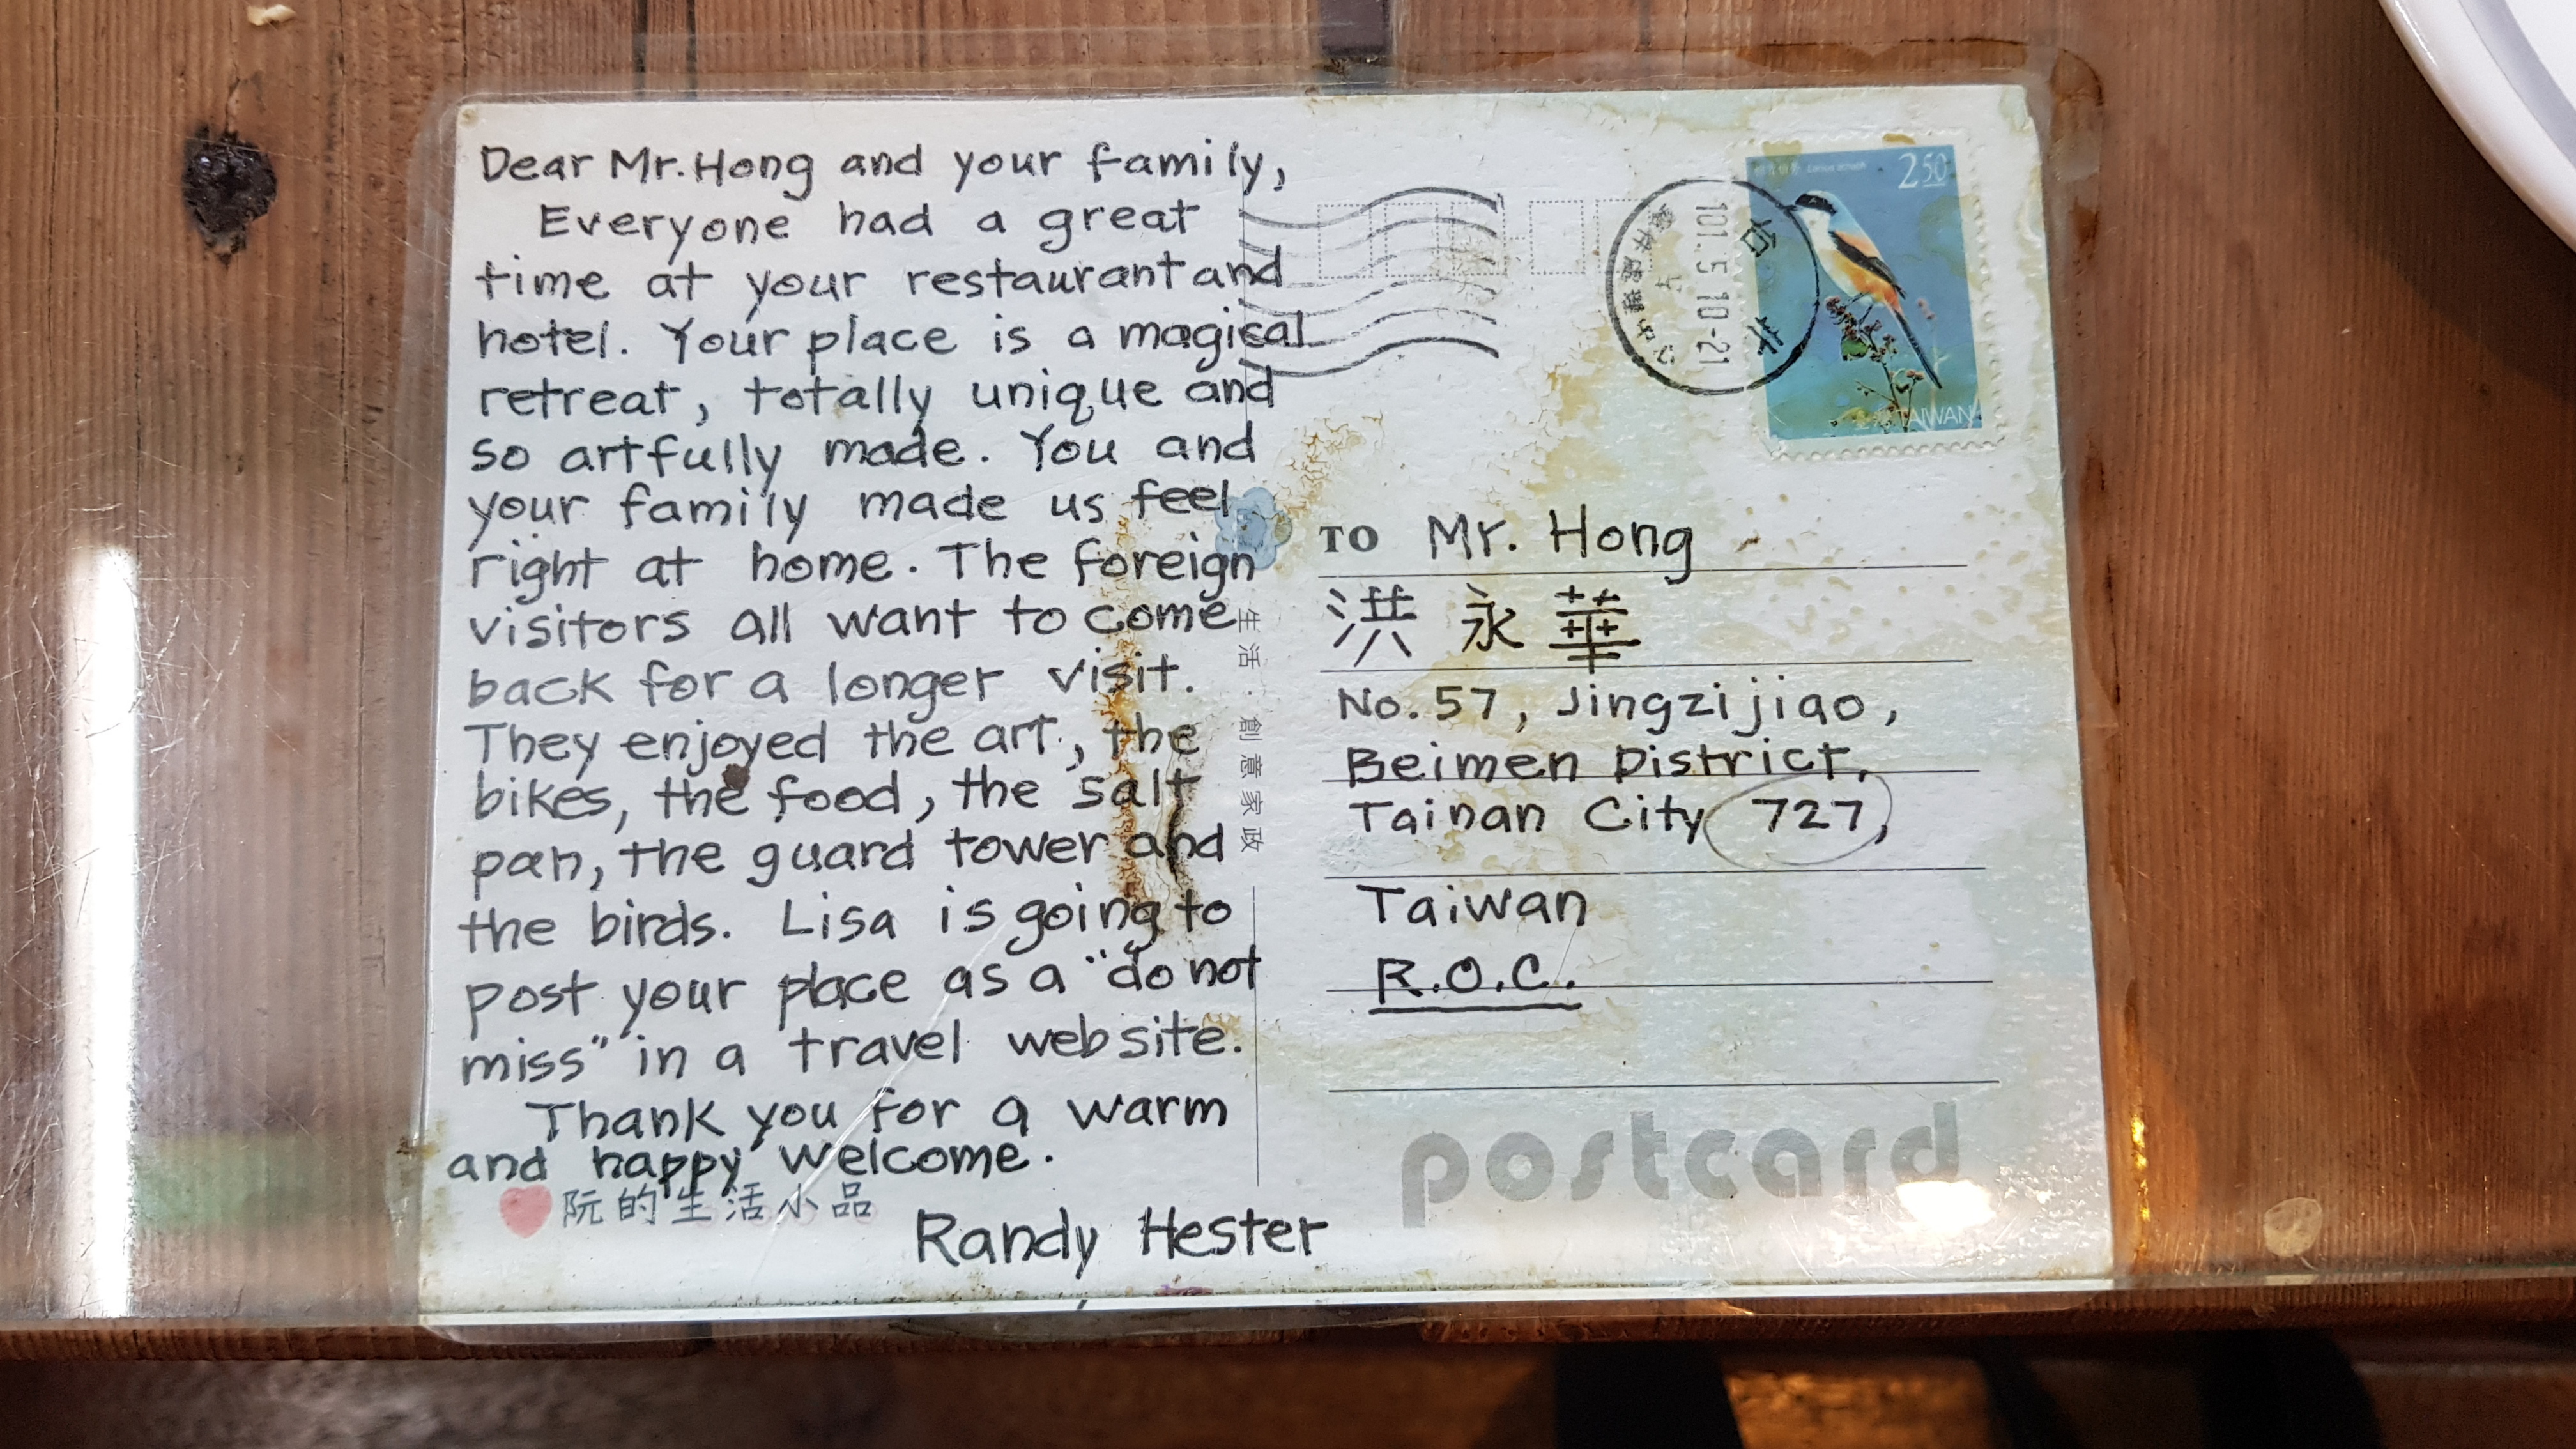 Dear Mr. Hong and your family,
Everyone had a great
time at your restaurant and
hotel. Your place is a magical
retreat, totally unique and
so artfully made. You and
your family made us feel
right at home. The foreign
visitors all want to come
back for a longer visit.
They enjoyed the art, the
bikes, the food, the salt
pan, the guard tower and
the birds. Lisa is going to
post your place as a "do not
miss" in a travel website.
Thank you for a warm
and happy welcome.
阮的生活小品
Randy Hester
生活·創意家政
2.50
TAIWAN
台北
101.5.10-21
TO Mr. Hong
洪永華
No.57, Jingzijiao,
Beimen District,
Tainan City 727,
Taiwan
R.O.C.
postcard